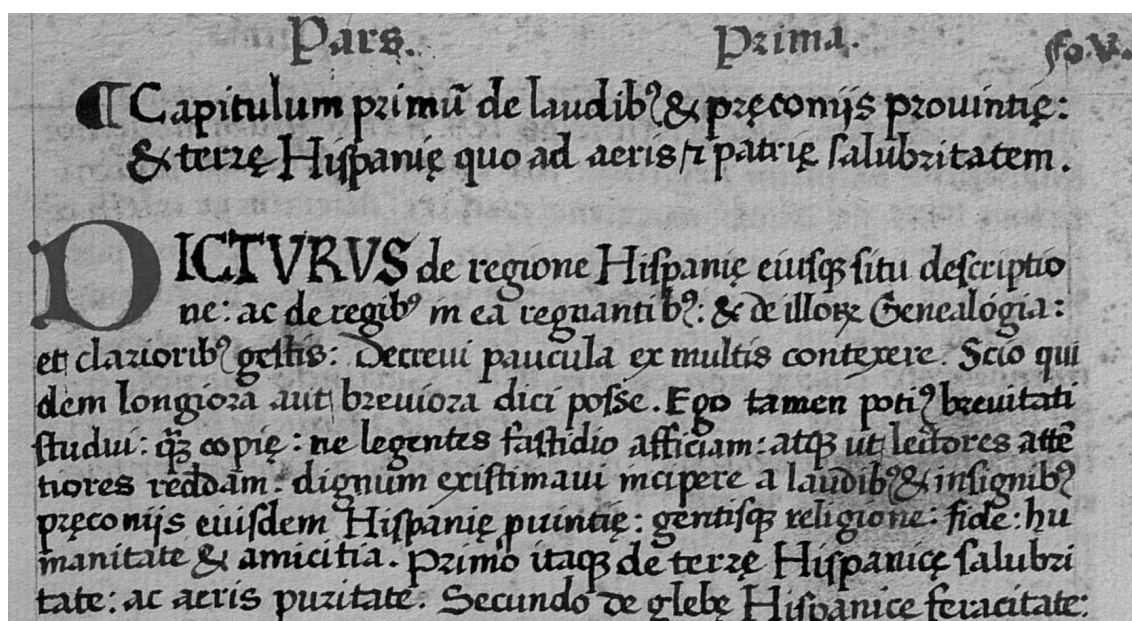 Pars. Prima. fo.V.
¶ Capitulum primũ de laudibꝰ & pręconijs prouintię:
& terrę Hiſpanię quo ad aeris ⁊ patrię ſalubritatem.
DICTVRVS de regione Hiſpanię eiuſqꝫ ſitu deſcriptio
ne: ac de regibꝰ in ea regnantibꝰ: & de illoꝝ Genealogia:
et clarioribꝰ geſtis: Decreui paucula ex multis contexere. Scio qui
dem longiora aut breuiora dici poſſe. Ego tamen potiꝰ breuitati
ſtudui: qꝫ̃ copię: ne legentes faſtidio afficiam: atqꝫ ut lectores attẽ
tiores reddam: dignum exiſtimaui incipere a laudibꝰ & inſignibꝰ
pręconijs eiuſdem Hiſpanię ꝓuintię: gentiſqꝫ religione: fide: hu
manitate & amicitia. Primo itaqꝫ de terrę Hiſpanicę ſalubri
tate: ac aeris puritate. Secundo de glebę Hiſpanicę feracitate: